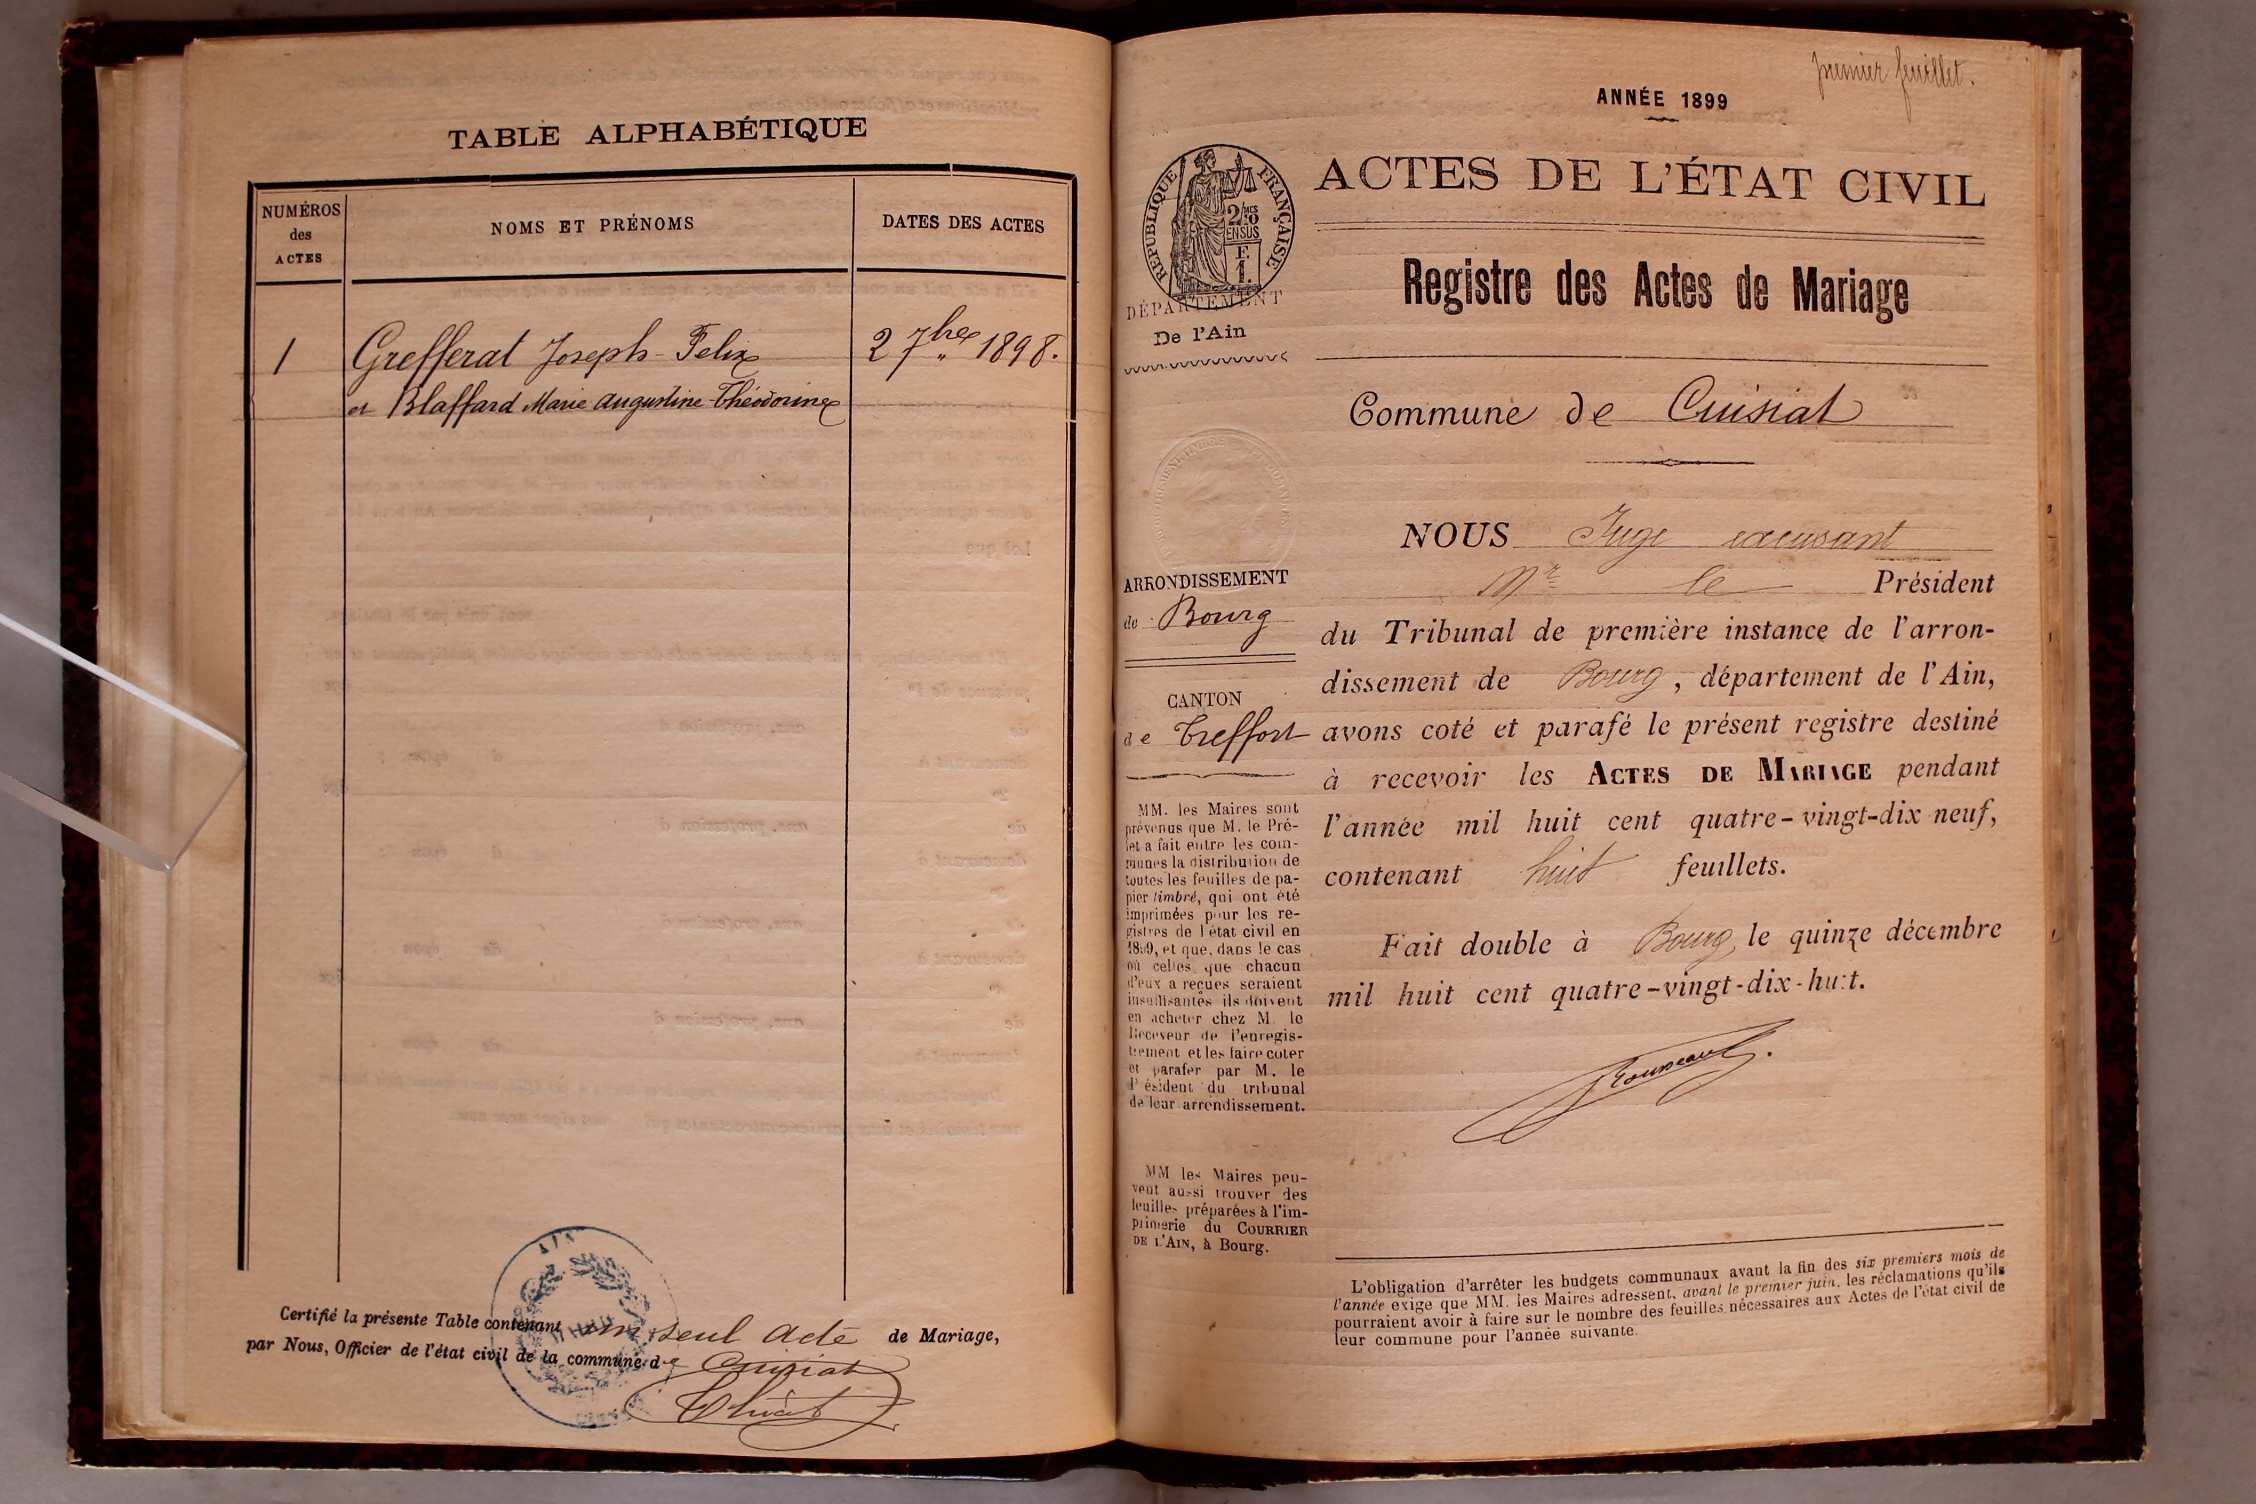 TABLE ALPHABÉTIQUE
NUMÉROS
des
ACTES
NOMS ET PRÉNOMS
DATES DES ACTES
1
Grefferat Joseph-Felix
2 7bre 1898.
et Blaffard Marie Augustine-Théodorine
AIN
Certifié la présente Table contenant un seul acte de Mariage,
par Nous, Officier de l'état civil de la commune de Cuisiat
premier feuillet.
ANNÉE 1899
RÉPUBLIQUE FRANÇAISE
2/10 MES
EN SUS
F.
1.
ACTES DE L'ÉTAT CIVIL
Registre des Actes de Mariage
DÉPARTEMENT
De l'Ain
Commune de Cuisiat
ARRONDISSEMENT
de Bourg
CANTON
de Treffort
MM. les Maires sont
prévenus que M. le Pré-
fet a fait entre les com-
munes la distribution de
toutes les feuilles de pa-
pier timbré, qui ont été
imprimées pour les re-
gistres de l'état civil en
1899, et que, dans le cas
où celles que chacun
d'eux a reçues seraient
insuffisantes ils doivent
en acheter chez M. le
Receveur de l'enregis-
trement et les faire coter
et parafer par M. le
Président du tribunal
de leur arrondissement.
MM les Maires peu-
vent aussi trouver des
feuilles préparées à l'im-
primerie du COURRIER
DE L'AIN, à Bourg.
NOUS Juge excusant
Mr le Président
du Tribunal de première instance de l'arron-
dissement de Bourg, département de l'Ain,
avons coté et parafé le présent registre destiné
à recevoir les ACTES DE MARIAGE pendant
l'année mil huit cent quatre-vingt-dix neuf,
contenant huit feuillets.
Fait double à Bourg, le quinze décembre
mil huit cent quatre-vingt-dix-huit.
L'obligation d'arrêter les budgets communaux avant la fin des six premiers mois de
l'année exige que MM. les Maires adressent, avant le premier juin, les réclamations qu'ils
pourraient avoir à faire sur le nombre des feuilles nécessaires aux Actes de l'état civil de
leur commune pour l'année suivante.